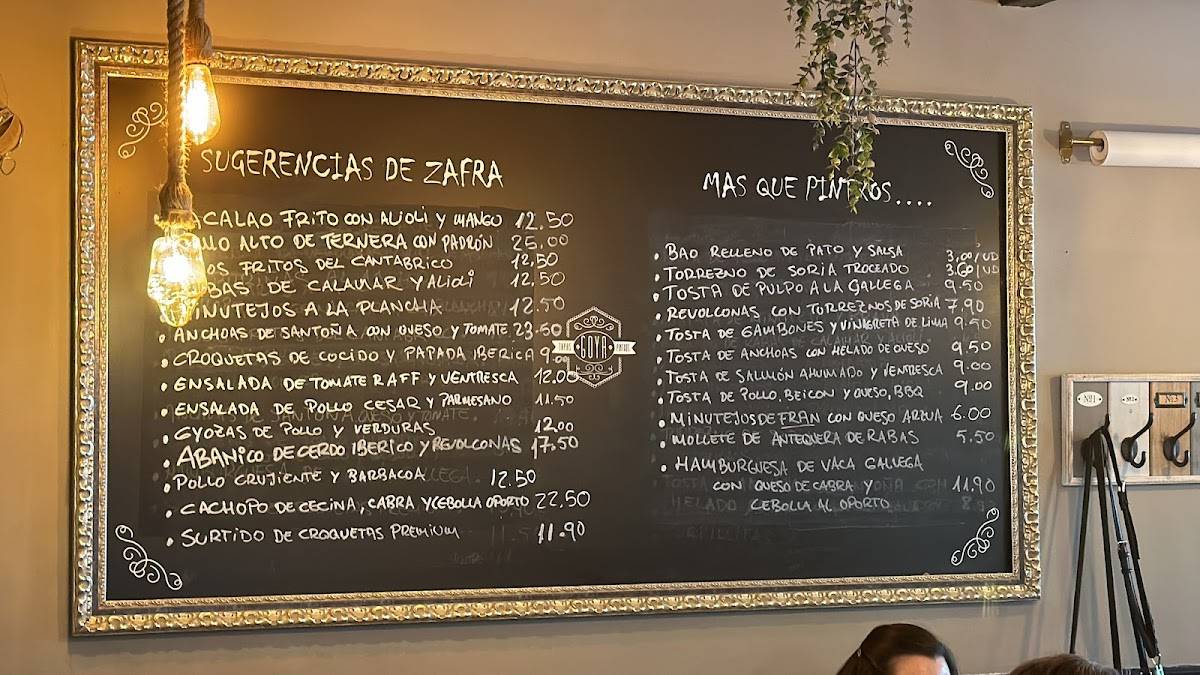 SUGERENCIAS DE ZAFRA
ACALAO FRITO CON ALIOLI Y MANGO 12.50
ALTO DE TERNERA CON PADRÓN 25.00
OS FRITOS DEL CANTABRICO 12,50
BAS DE CALAMAR Y ALIOLI 12.50
MINUTEJOS A LA PLANCHA 12.50
ANCHOAS DE SANTOÑA CON QUESO Y TOMATE 23.50
CROQUETAS DE COCIDO Y PAPADA IBERICA 9.00
ENSALADA DE TOMATE RAFF Y VENTRESCA 12.00
ENSALADA DE POLLO CESAR Y PARMESANO 11.50
GYOZAS DE POLLO Y VERDURAS 12.00
ABANICO DE CERDO IBERICO Y REVOLCONAS 17.50
POLLO CRUJIENTE Y BARBACOA 12.50
CACHOPO DE CECINA, CABRA Y CEBOLLA OPORTO 22.50
SURTIDO DE CROQUETAS PREMIUM 11.90
TAPAS GOYA PINTXOS
MAS QUE PINTXOS....
BAO RELLENO DE PATO Y SALSA 3,00/UD
TORREZNO DE SORIA TROCEADO 3.60/UD
TOSTA DE PULPO A LA GALLEGA 9.50
REVOLCONAS CON TORREZNOS DE SORIA 7,90
TOSTA DE GAMBONES Y VINAGRETA DE LIMA 9.50
TOSTA DE ANCHOAS CON HELADO DE QUESO 9.50
TOSTA DE SALMÓN AHUMADO Y VENTRESCA 9.00
TOSTA DE POLLO, BEICON Y QUESO, BBQ 9.00
MINUTEJOS DE FRAN CON QUESO ARZUA 6.00
MOLLETE DE ANTEQUERA DE RABAS 5.50
HAMBURGUESA DE VACA GALLEGA
CON QUESO DE CABRA Y 11,90
CEBOLLA AL OPORTO
Nº1
Nº2
Nº3